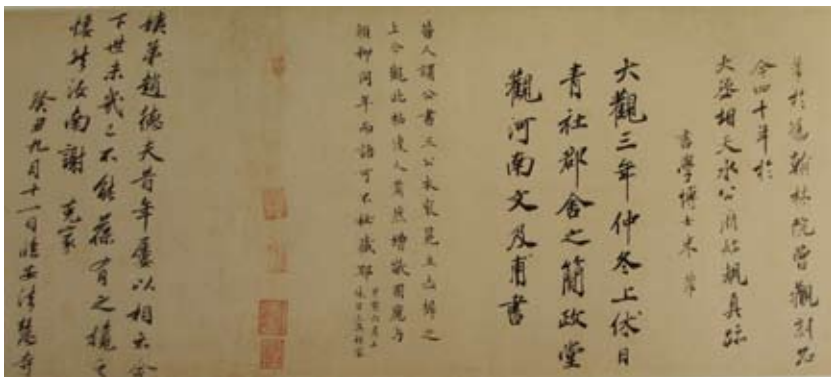 芾於舊翰林院曾觀刻石
今四十年於
大丞相天水公府始覩真跡
書學博士米芾
大觀三年仲冬上休日
青社郡舍之簡政堂
觀河南文及甫書
昔人謂公書三公衣袞冕立赤墀之
上今觀此帖使人肅然增敬固應與
顏柳同年而語可不秘藏耶
姨弟趙德夫昔年屢以相示今
下世未幾已不能葆有之攬之
悽然汝南謝克家
癸丑九月十一日臨安法慧寺